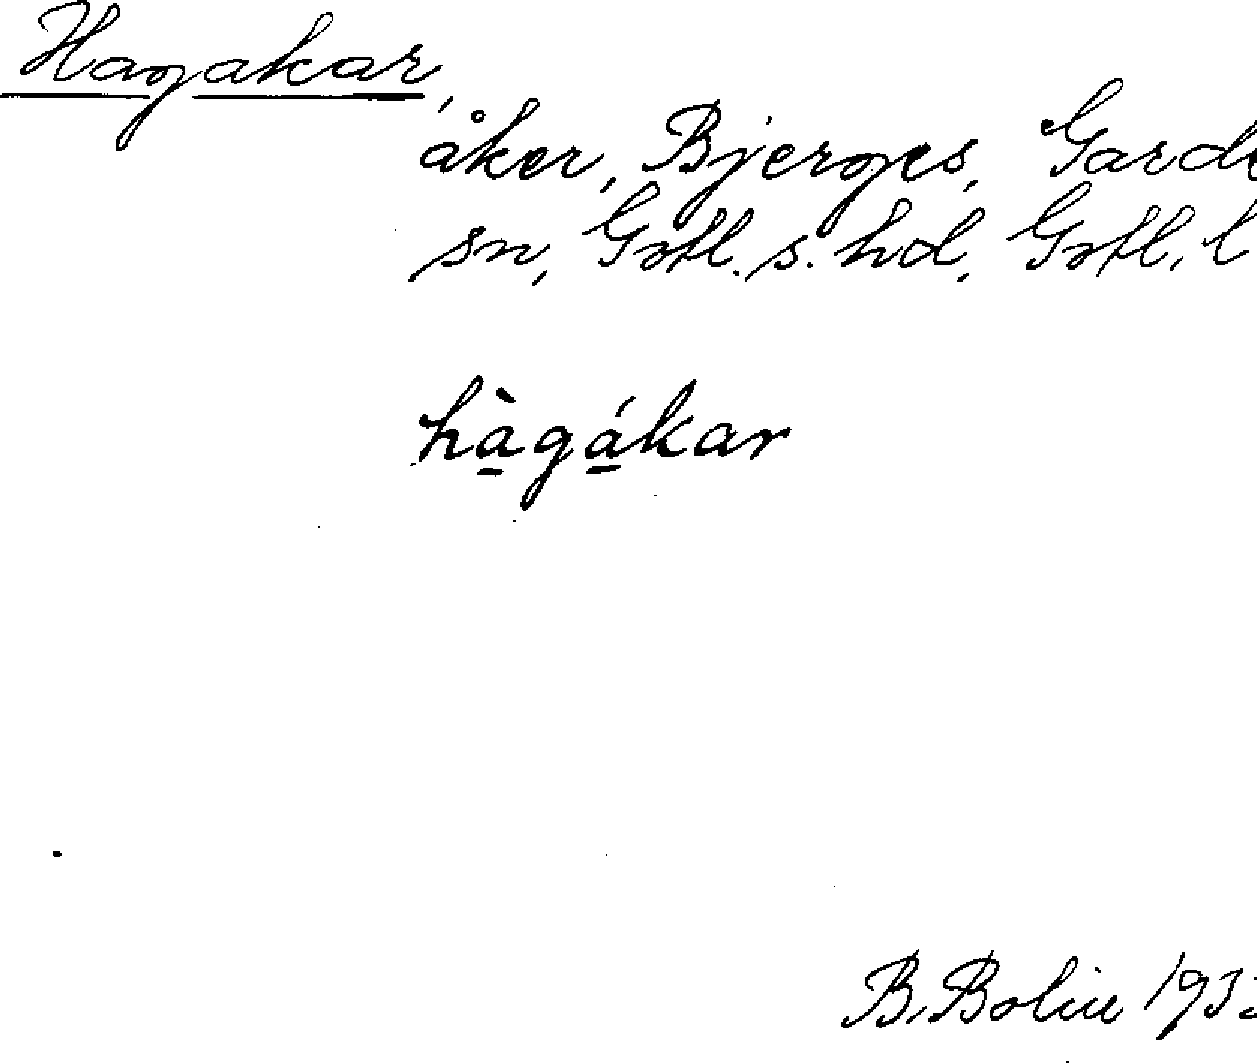 Hagakar,
åker, Bjerges, Garde
sn, Gotl. s. hd, Gotl. l
hà̱gá̱kar
B. Bolin 193